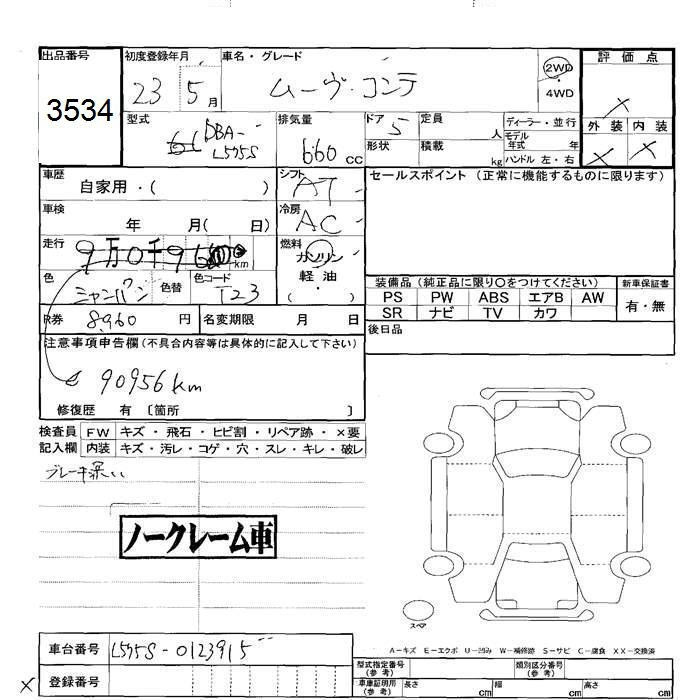 出品番号
3534
初度登録年月
23 5月
車名・グレード
ムーヴ・コンテ
2WD
・
4WD
評価点
×
外装 内装
× ×
型式
DBA-
L575S
排気量
660 cc
ドア 5
形状
定員 人
積載 kg
ディーラー・並行
モデル年式 年
ハンドル 左・右
車歴
自家用・( )
シフト
AT
車検
年 月( 日)
冷房
AC
走行
9万0千96 km
燃料
ガソリン
軽油
( ・ )
色
シャンパン
色替
色コード
T23
R券 8960 円
名変期限 月 日
セールスポイント(正常に機能するものに限ります)
装備品(純正品に限り○をつけてください)
PS PW ABS エアB AW
SR ナビ TV カワ
新車保証書
有・無
後日品
注意事項申告欄(不具合内容等は具体的に記入して下さい)
90956km
修復歴 有〔箇所 〕
検査員 FW キズ・飛石・ヒビ割・リペア跡・×要
記入欄 内装 キズ・汚レ・コゲ・穴・スレ・キレ・破レ
ブレーキ深い
ノークレーム車
スペア
A-キズ E-エクボ U-凹み W-補修跡 S-サビ C-腐食 XX-交換済
車台番号 L575S-0123915
× 登録番号
型式指定番号
(参考)
類別区分番号
(参考)
車庫証明用
(参考)
長さ cm 幅 cm 高さ cm